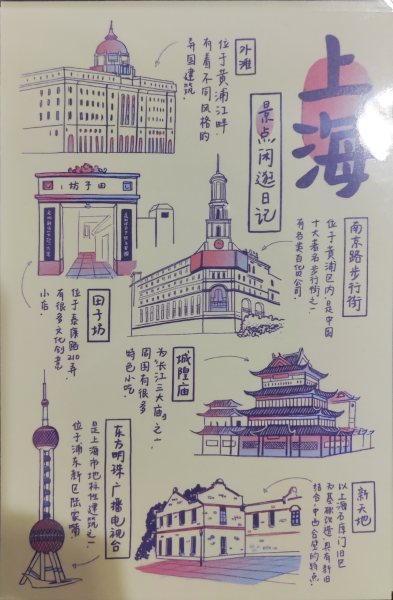 上海
景点闲逛日记
外滩
位于黄浦江畔,
有着不同风格的
异国建筑.
田子坊
田子坊
位于泰康路210弄.
有很多文化创意
小店.
南京路步行街
位于黄浦区内,是中国
十大著名步行街之一
有各类百货公司.
城隍庙
为“长江三大庙”之一
周围有很多
特色小吃.
东方明珠广播电视台
是上海市地标性建筑之一.
位于浦东新区陆家嘴
新天地
以上海石库门旧区
为基础改造,具有新旧
结合,中西合璧的特点.